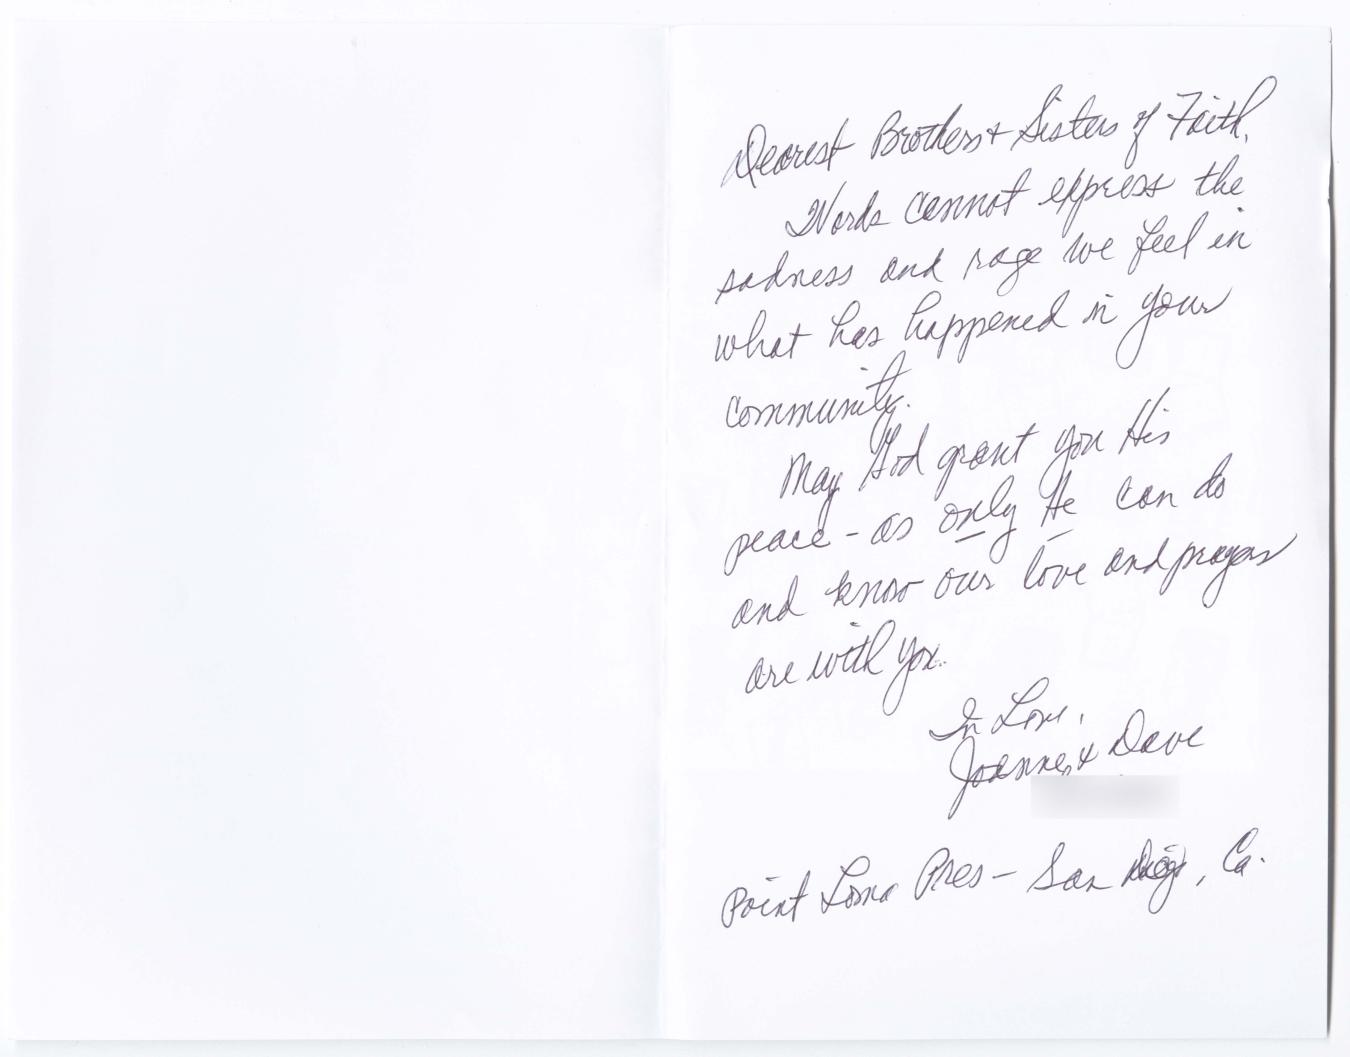 Dearest Brothers & Sisters of Faith,
Words cannot express the
sadness and rage we feel in
what has happened in your
community.
May God grant you His
peace - as only He can do
and know our love and prayers
are with you.
In Love,
Joanne & Dave
Point Loma Pres - San Diego, Ca.